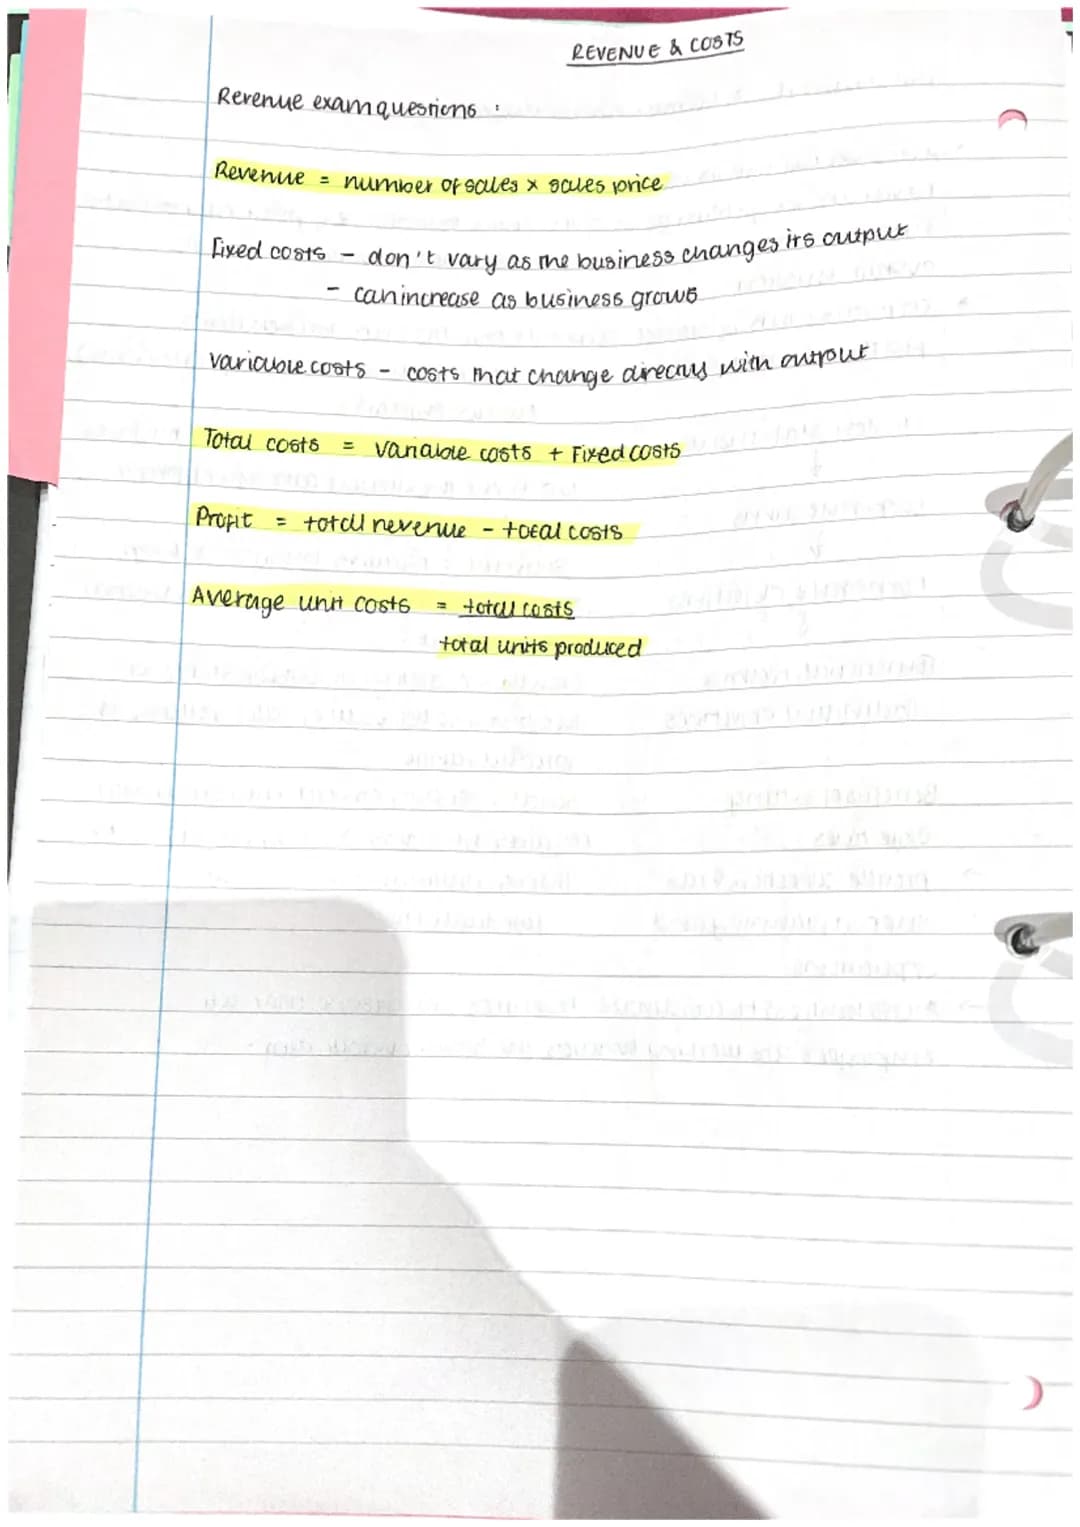 REVENUE & COSTS
Revenue exam questions :
Revenue = number of sales x sales price
Fixed costs - don't vary as the business changes its output
- can increase as business grows
Variable costs - costs that change directly with output
Total costs = variable costs + Fixed costs
Profit = total revenue - total costs
Average unit costs = total costs
total units produced